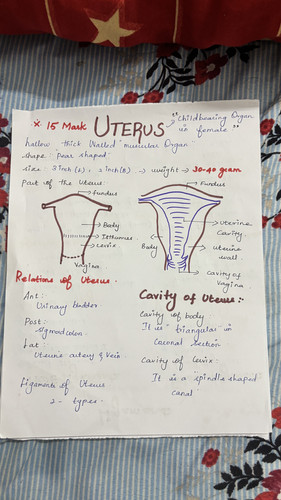 * 15 Mark UTERUS "Childbearing Organ in female"
hallow thick Walled muscular Organ
shape "Pear shaped"
size 3 inch (L), 2 inch (B) → weight → 30-40 gram
Part of the Uterus:
Fundus
Body
Isthumus
Cervix
Vagina
Fundus
Uterine Cavity
Body
uterine wall
Cavity of Vagina
Relations of Uterus
Ant:
Urinary bladder
Post:
Sigmoid colon
Lat:
Uterine artery & Vein
Ligaments of Uterus
2 - types -
Cavity of Uterus:-
Cavity of body
It is "triangular in
Coronal section
Cavity of Cervix
It is a spindle shaped
Canal